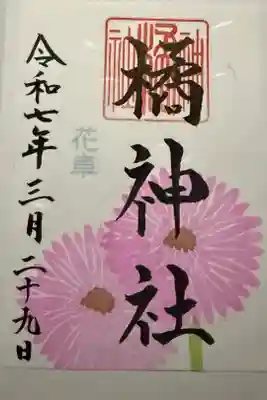 橘神社
花車
令和七年三月二十九日